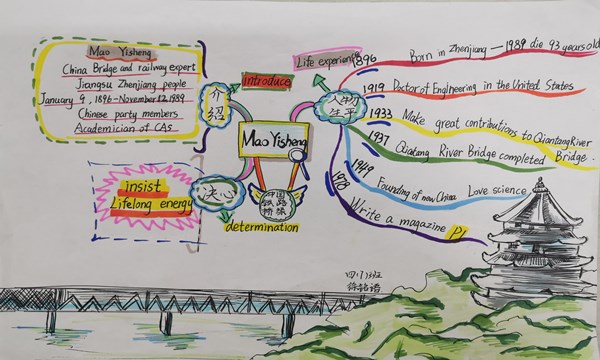 Mao Yisheng
China Bridge and railway expert
Jiangsu Zhenjiang people
January 9, 1896-November 12.1989
Chinese party members
Academician of CAS
介绍
introduce
Mao Yisheng
Life experience
人物
生平
1896
Born in Zhenjiang — 1989 die 93 years old
1919
Doctor of Engineering in the United States
1933
Make great contributions to Qiantang River
Bridge.
1937
Qiatang River Bridge completed
1949
Founding of new China Love science
1978
Write a magazine
insist
Lifelong energy
决心
determination
中国
铁路
桥旅